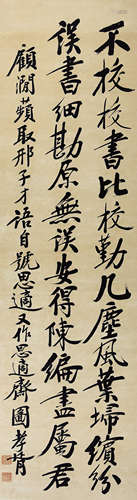 不校校書比校勤几塵風葉埽繽紛
誤書細勘原無誤安得陳編盡屬君
顧澗蘋取邢子才語自號思適又作思適齋圖孝胥